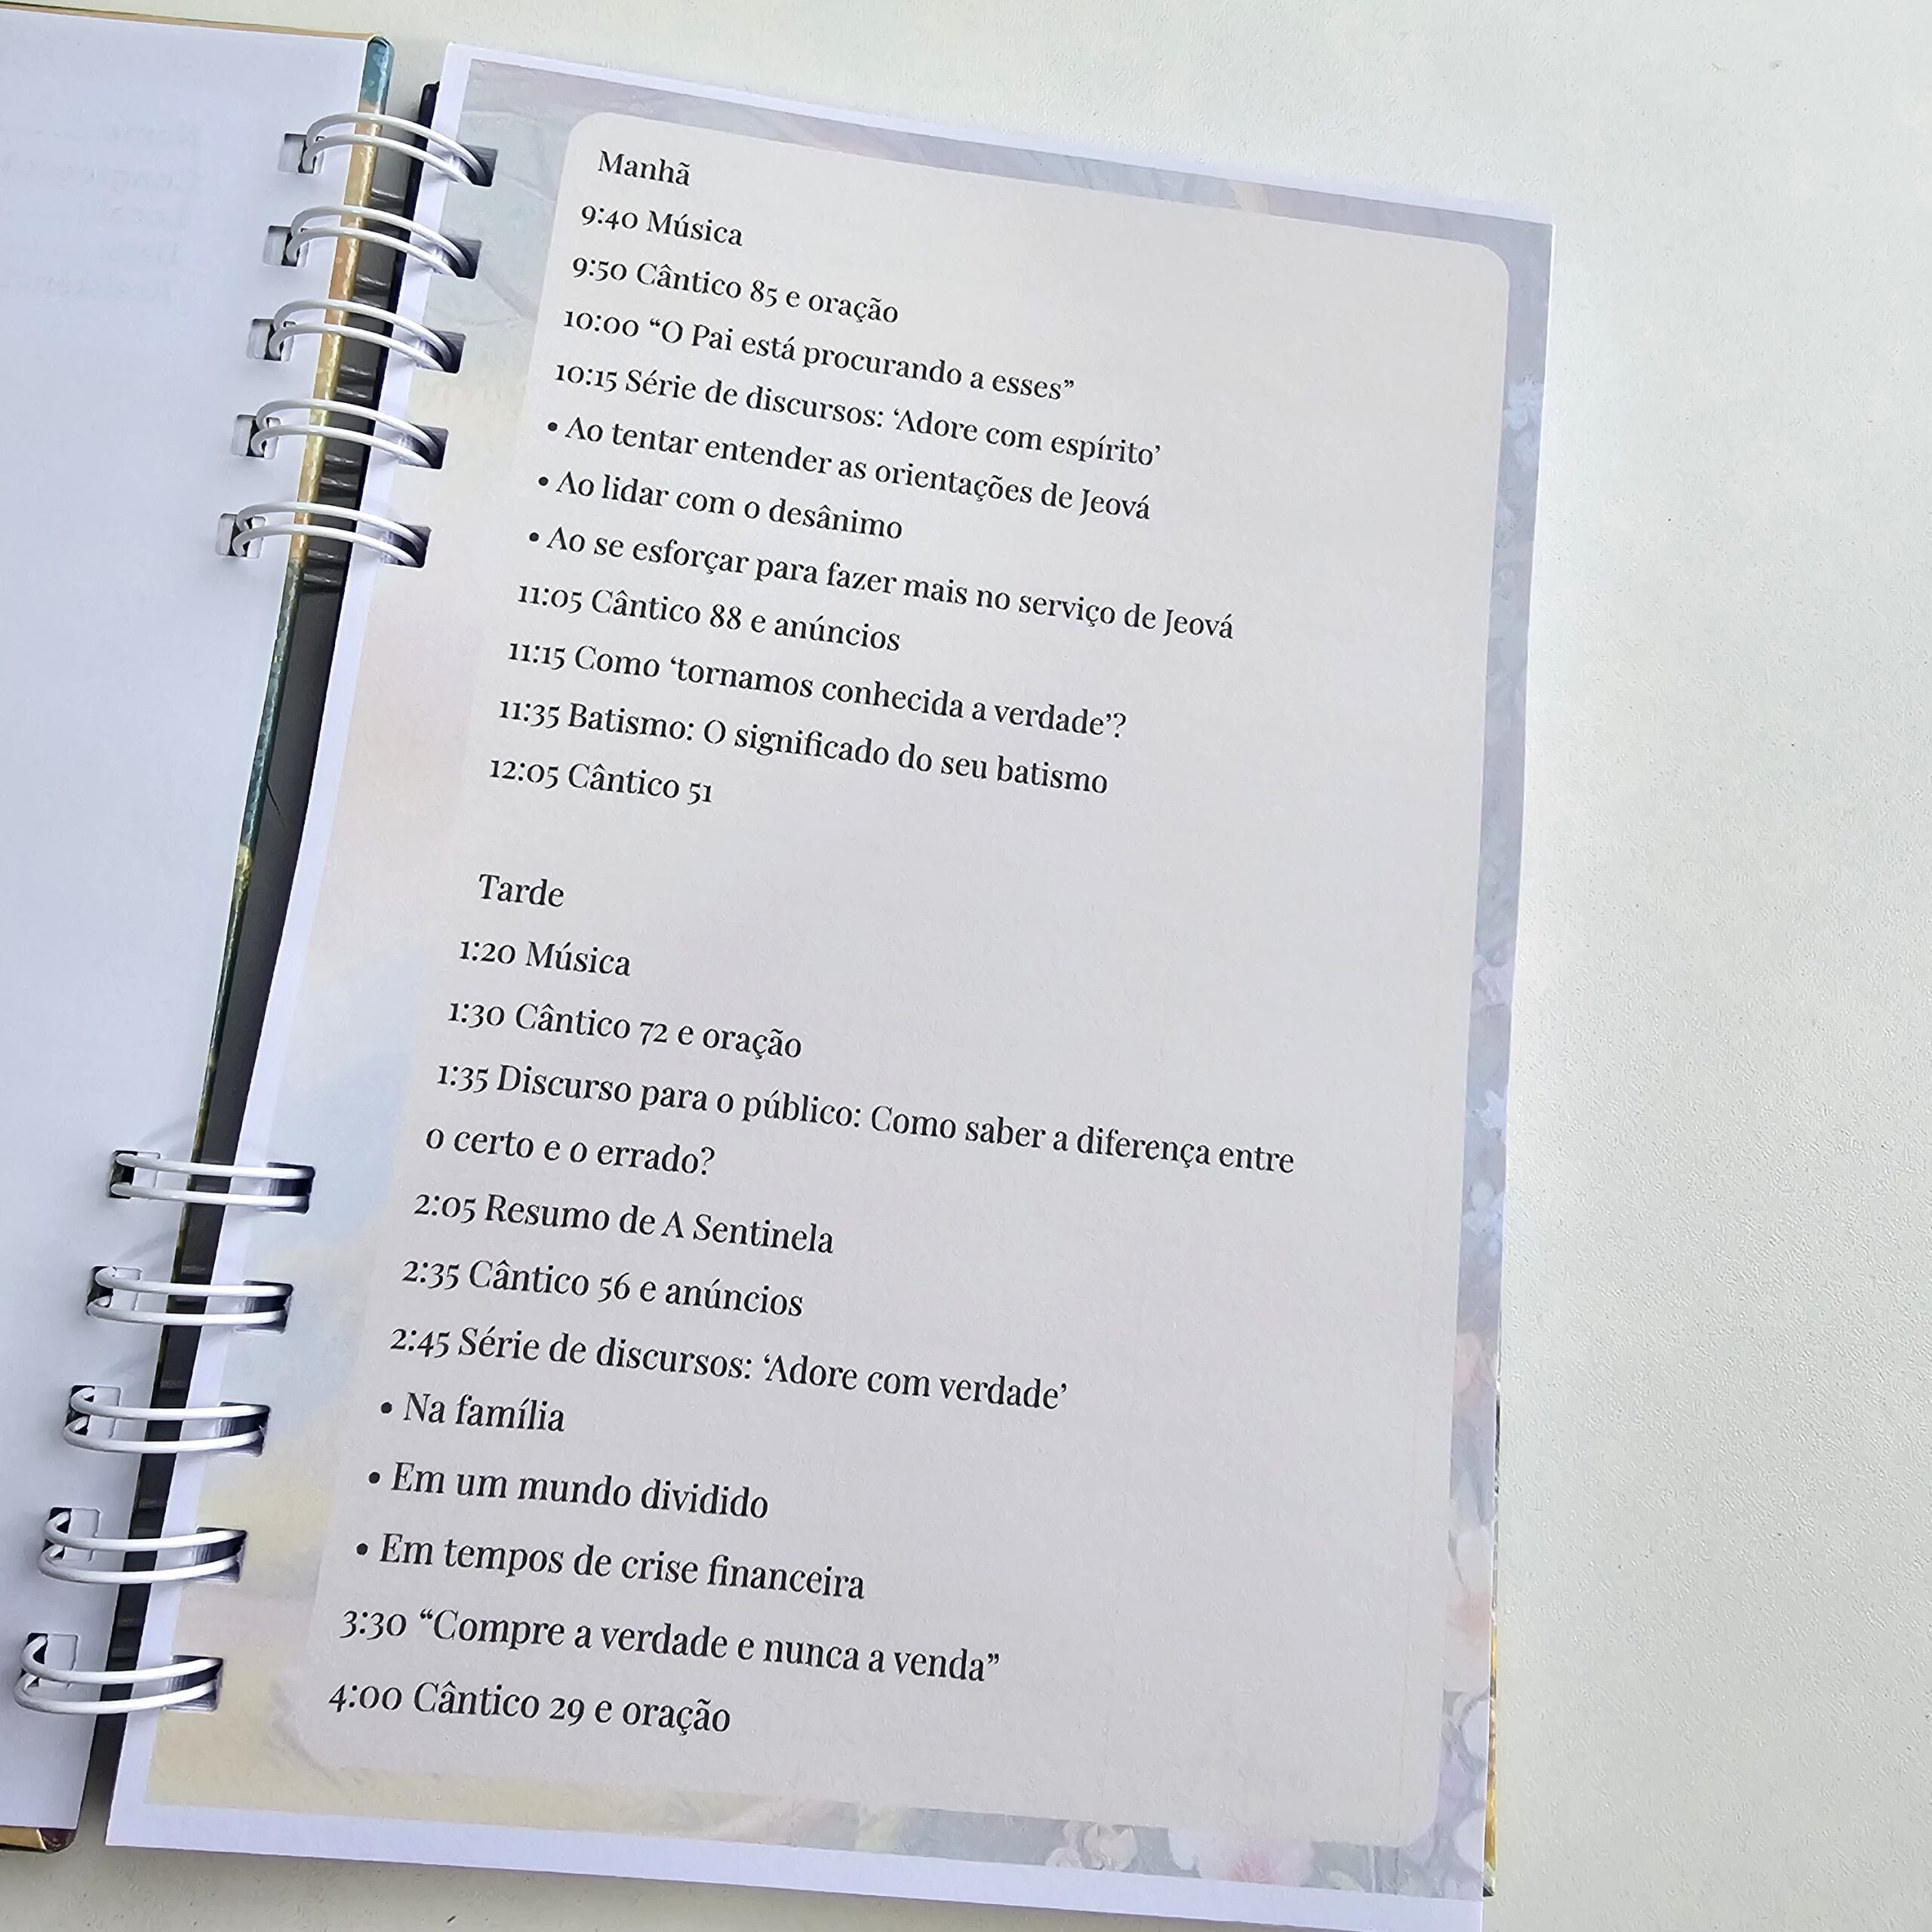 Manhã
9:40 Música
9:50 Cântico 85 e oração
10:00 “O Pai está procurando a esses”
10:15 Série de discursos: ‘Adore com espírito’
• Ao tentar entender as orientações de Jeová
• Ao lidar com o desânimo
• Ao se esforçar para fazer mais no serviço de Jeová
11:05 Cântico 88 e anúncios
11:15 Como ‘tornamos conhecida a verdade’?
11:35 Batismo: O significado do seu batismo
12:05 Cântico 51
Tarde
1:20 Música
1:30 Cântico 72 e oração
1:35 Discurso para o público: Como saber a diferença entre
o certo e o errado?
2:05 Resumo de A Sentinela
2:35 Cântico 56 e anúncios
2:45 Série de discursos: ‘Adore com verdade’
• Na família
• Em um mundo dividido
• Em tempos de crise financeira
3:30 “Compre a verdade e nunca a venda”
4:00 Cântico 29 e oração